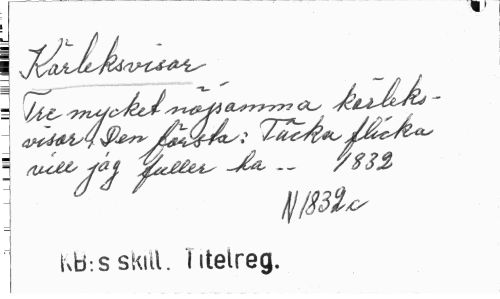 Kärleksvisor
Tre mycket nöjsamma kärleks-
visor. Den första: Täcka flicka
vill jag fuller ha -- 1832
N 1832 c
KB:s skill. Titelreg.